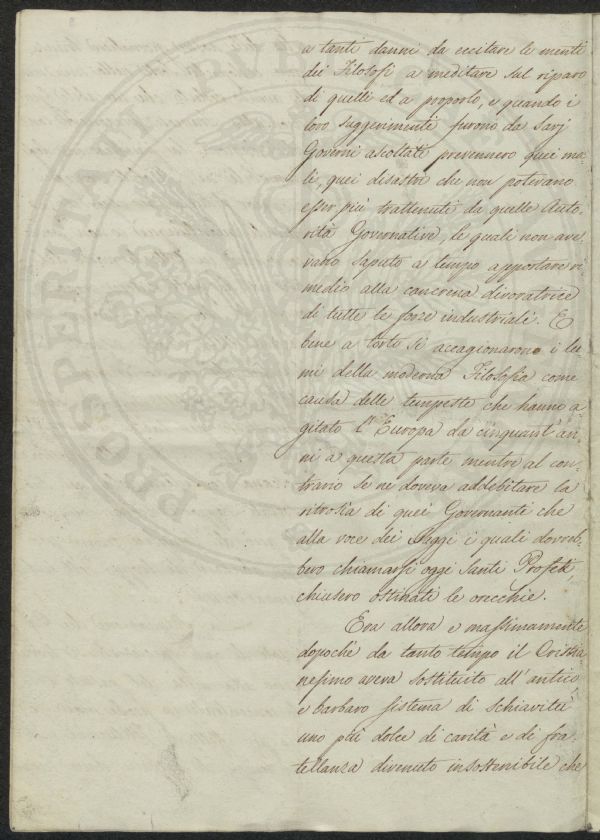 a tanti danni da eccitare le menti
dei Filosofi a meditare sul riparo
di quelli ed a proporlo, e quando i
loro suggerimenti furono da savj
Governi ascoltati prevennero quei ma=
li, quei disastri che non potevano
esser più trattenuti da quelle Auto,
rità Governative, le quali non ave,
vano saputo a tempo apportare ri
medio alla cancrena divoratrice
di tutte le forze industriali. E
bene a torto si accagionarono i lu
mi della moderna Filosofia come
causa delle tempeste che hanno a
gitato l'Europa da cinquant'an,
ni a questa parte mentre al con,
trario se ne doveva addebitare la
ritrosia di quei Governanti che
alla voce dei saggi i quali dovreb,
bero chiamarsi oggi Santi Profeti,
chiusero ostinati le orecchie.
Era allora e massimamente
dopoché da tanto tempo il Cristia
nesimo aveva sostituito all'antico,
e barbaro sistema di schiavitù
uno più dolce di carità e di fra
tellanza divenuto insostenibile che
PROSPERITATI PUB